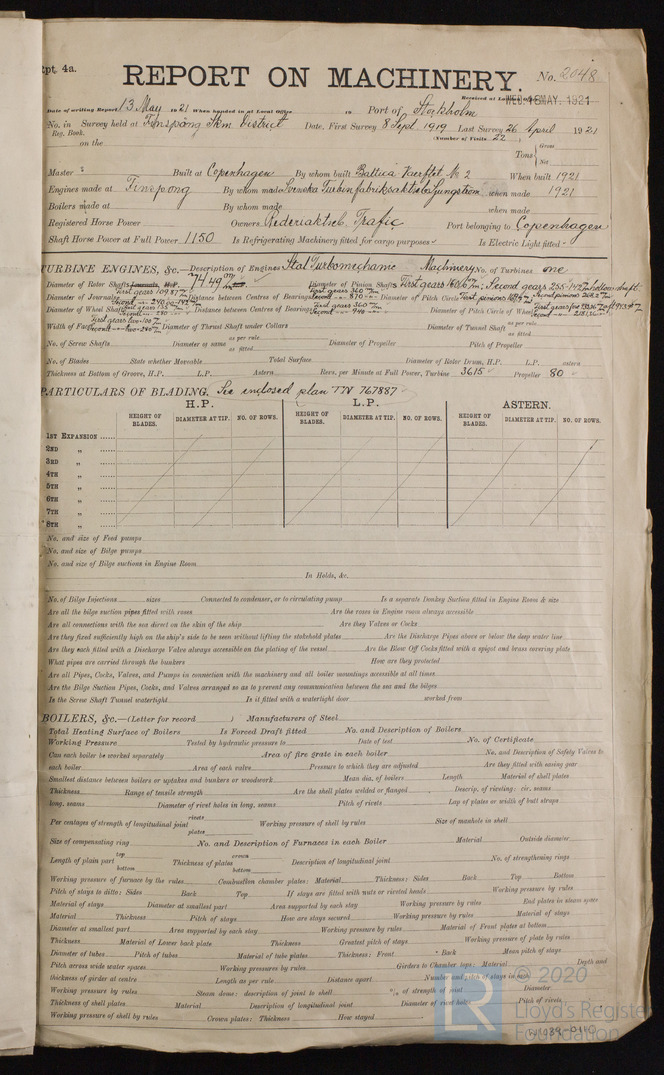 Rpt. 4a.
REPORT ON MACHINERY.
No. 2048
Received at London Office WED. 18 MAY. 1921
Date of writing Report 13 May 1921 When handed in at Local Office 19 Port of Stockholm
No. in Survey held at Finspong Stkm District Date, First Survey 8 Sept. 1919 Last Survey 26 April 1921
Reg. Book. (Number of Visits 22
on the Tons Gross Net
Master Built at Copenhagen By whom built Baltica Vaerftet No 2 When built 1921
Engines made at Finspong By whom made Svenska Turbinfabriksaktieb. Ljungström when made 1921
Boilers made at By whom made when made
Registered Horse Power Owners Rederiaktieb. Trafic Port belonging to Copenhagen
Shaft Horse Power at Full Power 1150 Is Refrigerating Machinery fitted for cargo purposes Is Electric Light fitted
TURBINE ENGINES, &c.—Description of Engines Stal Turbomechanic Machinery No. of Turbines one
Diameter of Rotor Shafts
Diameter of Journals Distance between Centres of Bearings Diameter of Pitch Circle
Diameter of Wheel Shaft Distance between Centres of Bearings Diameter of Pitch Circle of Wheel
Width of Face Diameter of Thrust Shaft under Collars Diameter of Tunnel Shaft as per rule as fitted
No. of Screw Shafts Diameter of same as per rule as fitted Diameter of Propeller Pitch of Propeller
No. of Blades State whether Moveable Total Surface Diameter of Rotor Drum, H.P. L.P. Astern
Thickness at Bottom of Groove, H.P. L.P. Astern Revs. per Minute at Full Power, Turbine 3615 Propeller 80
PARTICULARS OF BLADING. See enclosed plan TN 767887
H.P. L.P. ASTERN.
HEIGHT OF BLADES. DIAMETER AT TIP. NO. OF ROWS. HEIGHT OF BLADES. DIAMETER AT TIP. NO. OF ROWS. HEIGHT OF BLADES. DIAMETER AT TIP. NO. OF ROWS.
1ST EXPANSION
2ND „
3RD „
4TH „
5TH „
6TH „
7TH „
8TH „
No. and size of Feed pumps
No. and size of Bilge pumps
No. and size of Bilge suctions in Engine Room
In Holds, &c.
No. of Bilge Injections sizes Connected to condenser, or to circulating pump Is a separate Donkey Suction fitted in Engine Room & size
Are all the bilge suction pipes fitted with roses Are the roses in Engine room always accessible
Are all connections with the sea direct on the skin of the ship Are they Valves or Cocks
Are they fixed sufficiently high on the ship's side to be seen without lifting the stokehold plates Are the Discharge Pipes above or below the deep water line
Are they each fitted with a Discharge Valve always accessible on the plating of the vessel Are the Blow Off Cocks fitted with a spigot and brass covering plate
What pipes are carried through the bunkers How are they protected
Are all Pipes, Cocks, Valves, and Pumps in connection with the machinery and all boiler mountings accessible at all times
Are the Bilge Suction Pipes, Cocks, and Valves arranged so as to prevent any communication between the sea and the bilges
Is the Screw Shaft Tunnel watertight Is it fitted with a watertight door worked from
BOILERS, &c.—(Letter for record ) Manufacturers of Steel
Total Heating Surface of Boilers Is Forced Draft fitted No. and Description of Boilers
Working Pressure Tested by hydraulic pressure to Date of test No. of Certificate
Can each boiler be worked separately Area of fire grate in each boiler No. and Description of Safety Valves to
each boiler Area of each valve Pressure to which they are adjusted Are they fitted with easing gear
Smallest distance between boilers or uptakes and bunkers or woodwork Mean dia. of boilers Length Material of shell plates
Thickness Range of tensile strength Are the shell plates welded or flanged Descrip. of riveting: cir. seams
long. seams Diameter of rivet holes in long. seams Pitch of rivets Lap of plates or width of butt straps
Per centages of strength of longitudinal joint rivets plates Working pressure of shell by rules Size of manhole in shell
Size of compensating ring No. and Description of Furnaces in each Boiler Material Outside diameter
Length of plain part top bottom Thickness of plates crown bottom Description of longitudinal joint No. of strengthening rings
Working pressure of furnace by the rules Combustion chamber plates: Material Thickness: Sides Back Top Bottom
Pitch of stays to ditto: Sides Back Top If stays are fitted with nuts or riveted heads Working pressure by rules
Material of stays Diameter at smallest part Area supported by each stay Working pressure by rules End plates in steam space
Material Thickness Pitch of stays How are stays secured Working pressure by rules Material of stays
Diameter at smallest part Area supported by each stay Working pressure by rules Material of Front plates at bottom
Thickness Material of Lower back plate Thickness Greatest pitch of stays Working pressure of plate by rules
Diameter of tubes Pitch of tubes Material of tube plates Thickness: Front Back Mean pitch of stays
Pitch across wide water spaces Working pressures by rules Girders to Chamber tops: Material Depth and
thickness of girder at centre Length as per rule Distance apart Number and pitch of stays in each
Working pressure by rules Steam dome: description of joint to shell % of strength of joint Diameter
Thickness of shell plates Material Description of longitudinal joint Diameter of rivet holes Pitch of rivets
Working pressure of shell by rules Crown plates: Thickness How stayed
© 2020
LR
Lloyd's Register
Foundation
W1089-0110